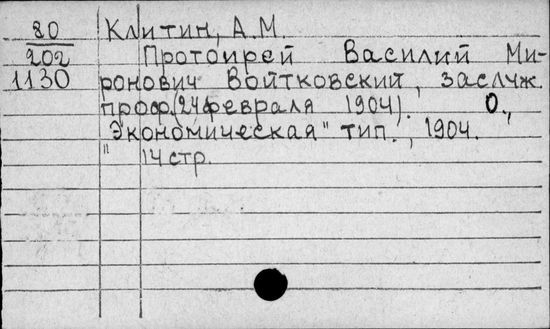 80 Клитин, А.М.
202 Протоирей Василий Ми-
1130 ронович Войтковский, заслуж.
проф.(24 февраля 1904). О.,
"Экономическая" тип., 1904.
14 стр.